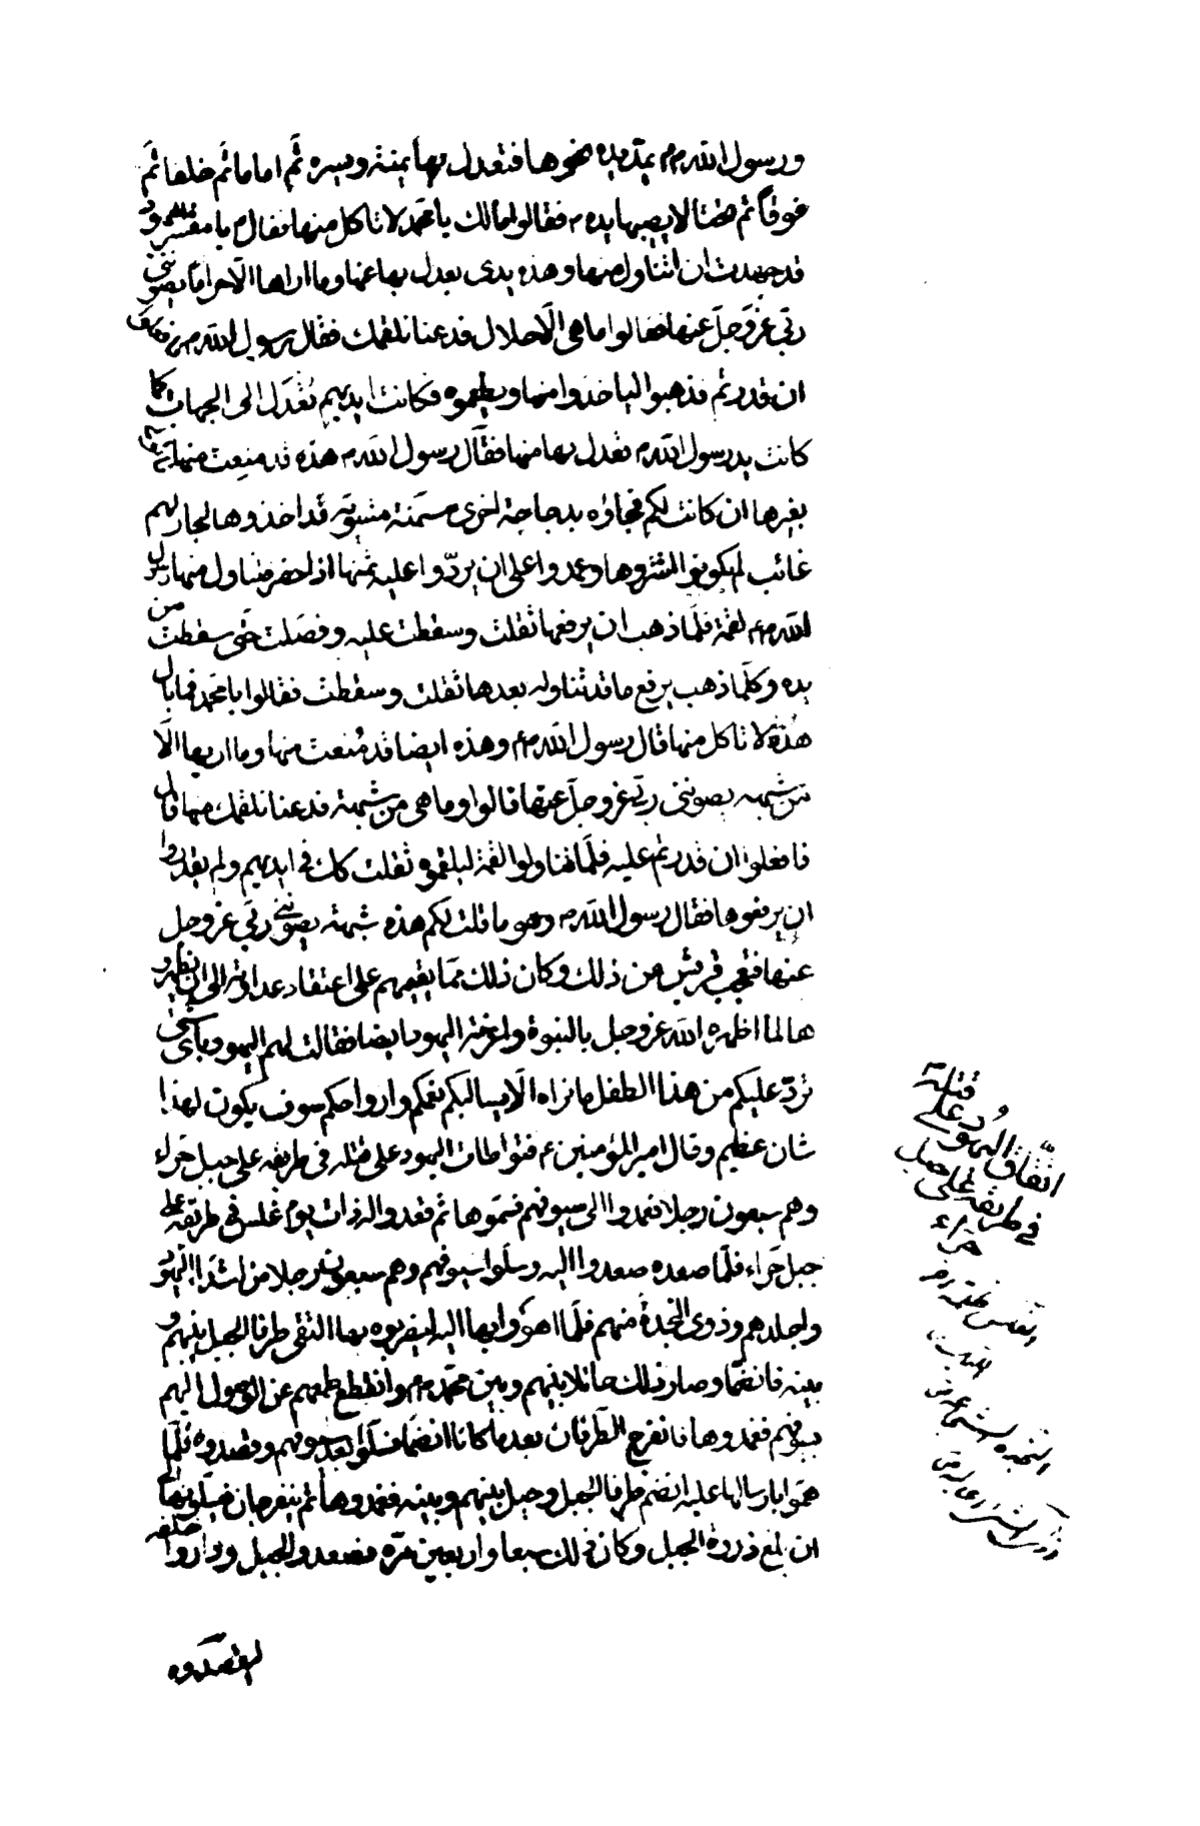 ورسول الله ص م يمد يده نحوها فتعدل بها يمنة ويسرة ثم اماما ثم خلفا ثم
فوقا ثم تحتا لا يصيبها يده ص فقالوا مالك يا محمد لا تاكل منها فقال م يا معشر اليهود
قد جهدت ان اتناول منها وهذه يدى يعدل بها عنها وما اراها الا حراما يصونني
ربي عز وجل عنها فقالوا ما هى الا حلال فدعنا نلقمك فقال رسول الله ص م فافعلوا
ان قدرتم فذهبوا لياخذوا منها ويطعموه فكانت ايديهم تعدل الى الجهات كما
كانت يد رسول الله م تعدل بها منها فقال رسول الله م هذه قد منعت منها فاتوني
بغيرها ان كانت لكم فجاؤه بدجاجة اخرى مسمنة مشوية قد اخذوها لجار لهم
غائب لم يكونوا اشتروها وعمدوا على ان يردوا عليه ثمنها اذا حضر فتناول منها رسول
الله ص م لقمة فلما ذهب ان يرفعها ثقلت وسقطت عليه وفصلت حتى سقطت من
يده وكلما ذهب يرفع ما قد تناوله بعدها ثقلت وسقطت فقالوا يا محمد فما بال
هذه لا تاكل منها قال رسول الله ص م وهذه ايضا قد منعت منها وما اراها الا
من شبهه يصونني ربي عز وجل عنها قالوا وما هى من شبهة فدعنا نلقمك منها قال
فافعلوا ان قدرتم عليه فلما تناولوا لقمة ليلقموه ثقلت كذلك في ايديهم ولم يقدروا
ان يرفعوها فقال رسول الله م وهو ما قلت لكم هذه شبهة يصونني ربي عز وجل
عنها فتعجب قريش من ذلك وكان ذلك مما يقيمهم على اعتقاد عداوته الى ان اظهرو
ها لما اظهره الله عز وجل بالنبوة واغرته اليهود ايضا فقالت لهم اليهود باى شئ
يرد عليكم من هذا الطفل ما نراه الا يسالبكم نعمكم وارواحكم سوف يكون لهذا
شان عظيم وقال امير المؤمنين ع فتواطات اليهود على قتله في طريقه على جبل حراء
وهم سبعون رجلا فعمدوا الى سيوفهم فسموها ثم قعدوا له ذات يوم غلس في طريقه على
جبل حراء فلما صعده صعدوا اليه وسلوا سيوفهم وهم سبعون رجلا من اشد اليهود
واجلدهم وذوى النجدة منهم فلما اهووا بها اليه ليضربوه بها التقى طرفا الجبل بينهم و
بينه فانضما وصار ذلك حائلا بينهم وبين محمد ص م وانقطع طمعهم عن الوصول اليهم
بسيوفهم فغمدوها فانفرج الطرفان بعد ما كانا انضما فسلوا بعد سيوفهم وقصدوه فلما
هموا بارسالها عليه انضم طرفا الجبل وحيل بينهم وبينه فغمدوها ثم ينفرجان فيسلونها الى
ان بلغ ذروة الجبل وكان ذلك سبعا واربعين مرة فصعدوا الجبل وداروا خلفه
ليقصدوه
اتفاق اليهود على قتله
في طريقه على جبل
حراء
الغلس ظلمة اخر
الليل
النجدة الشجاعة